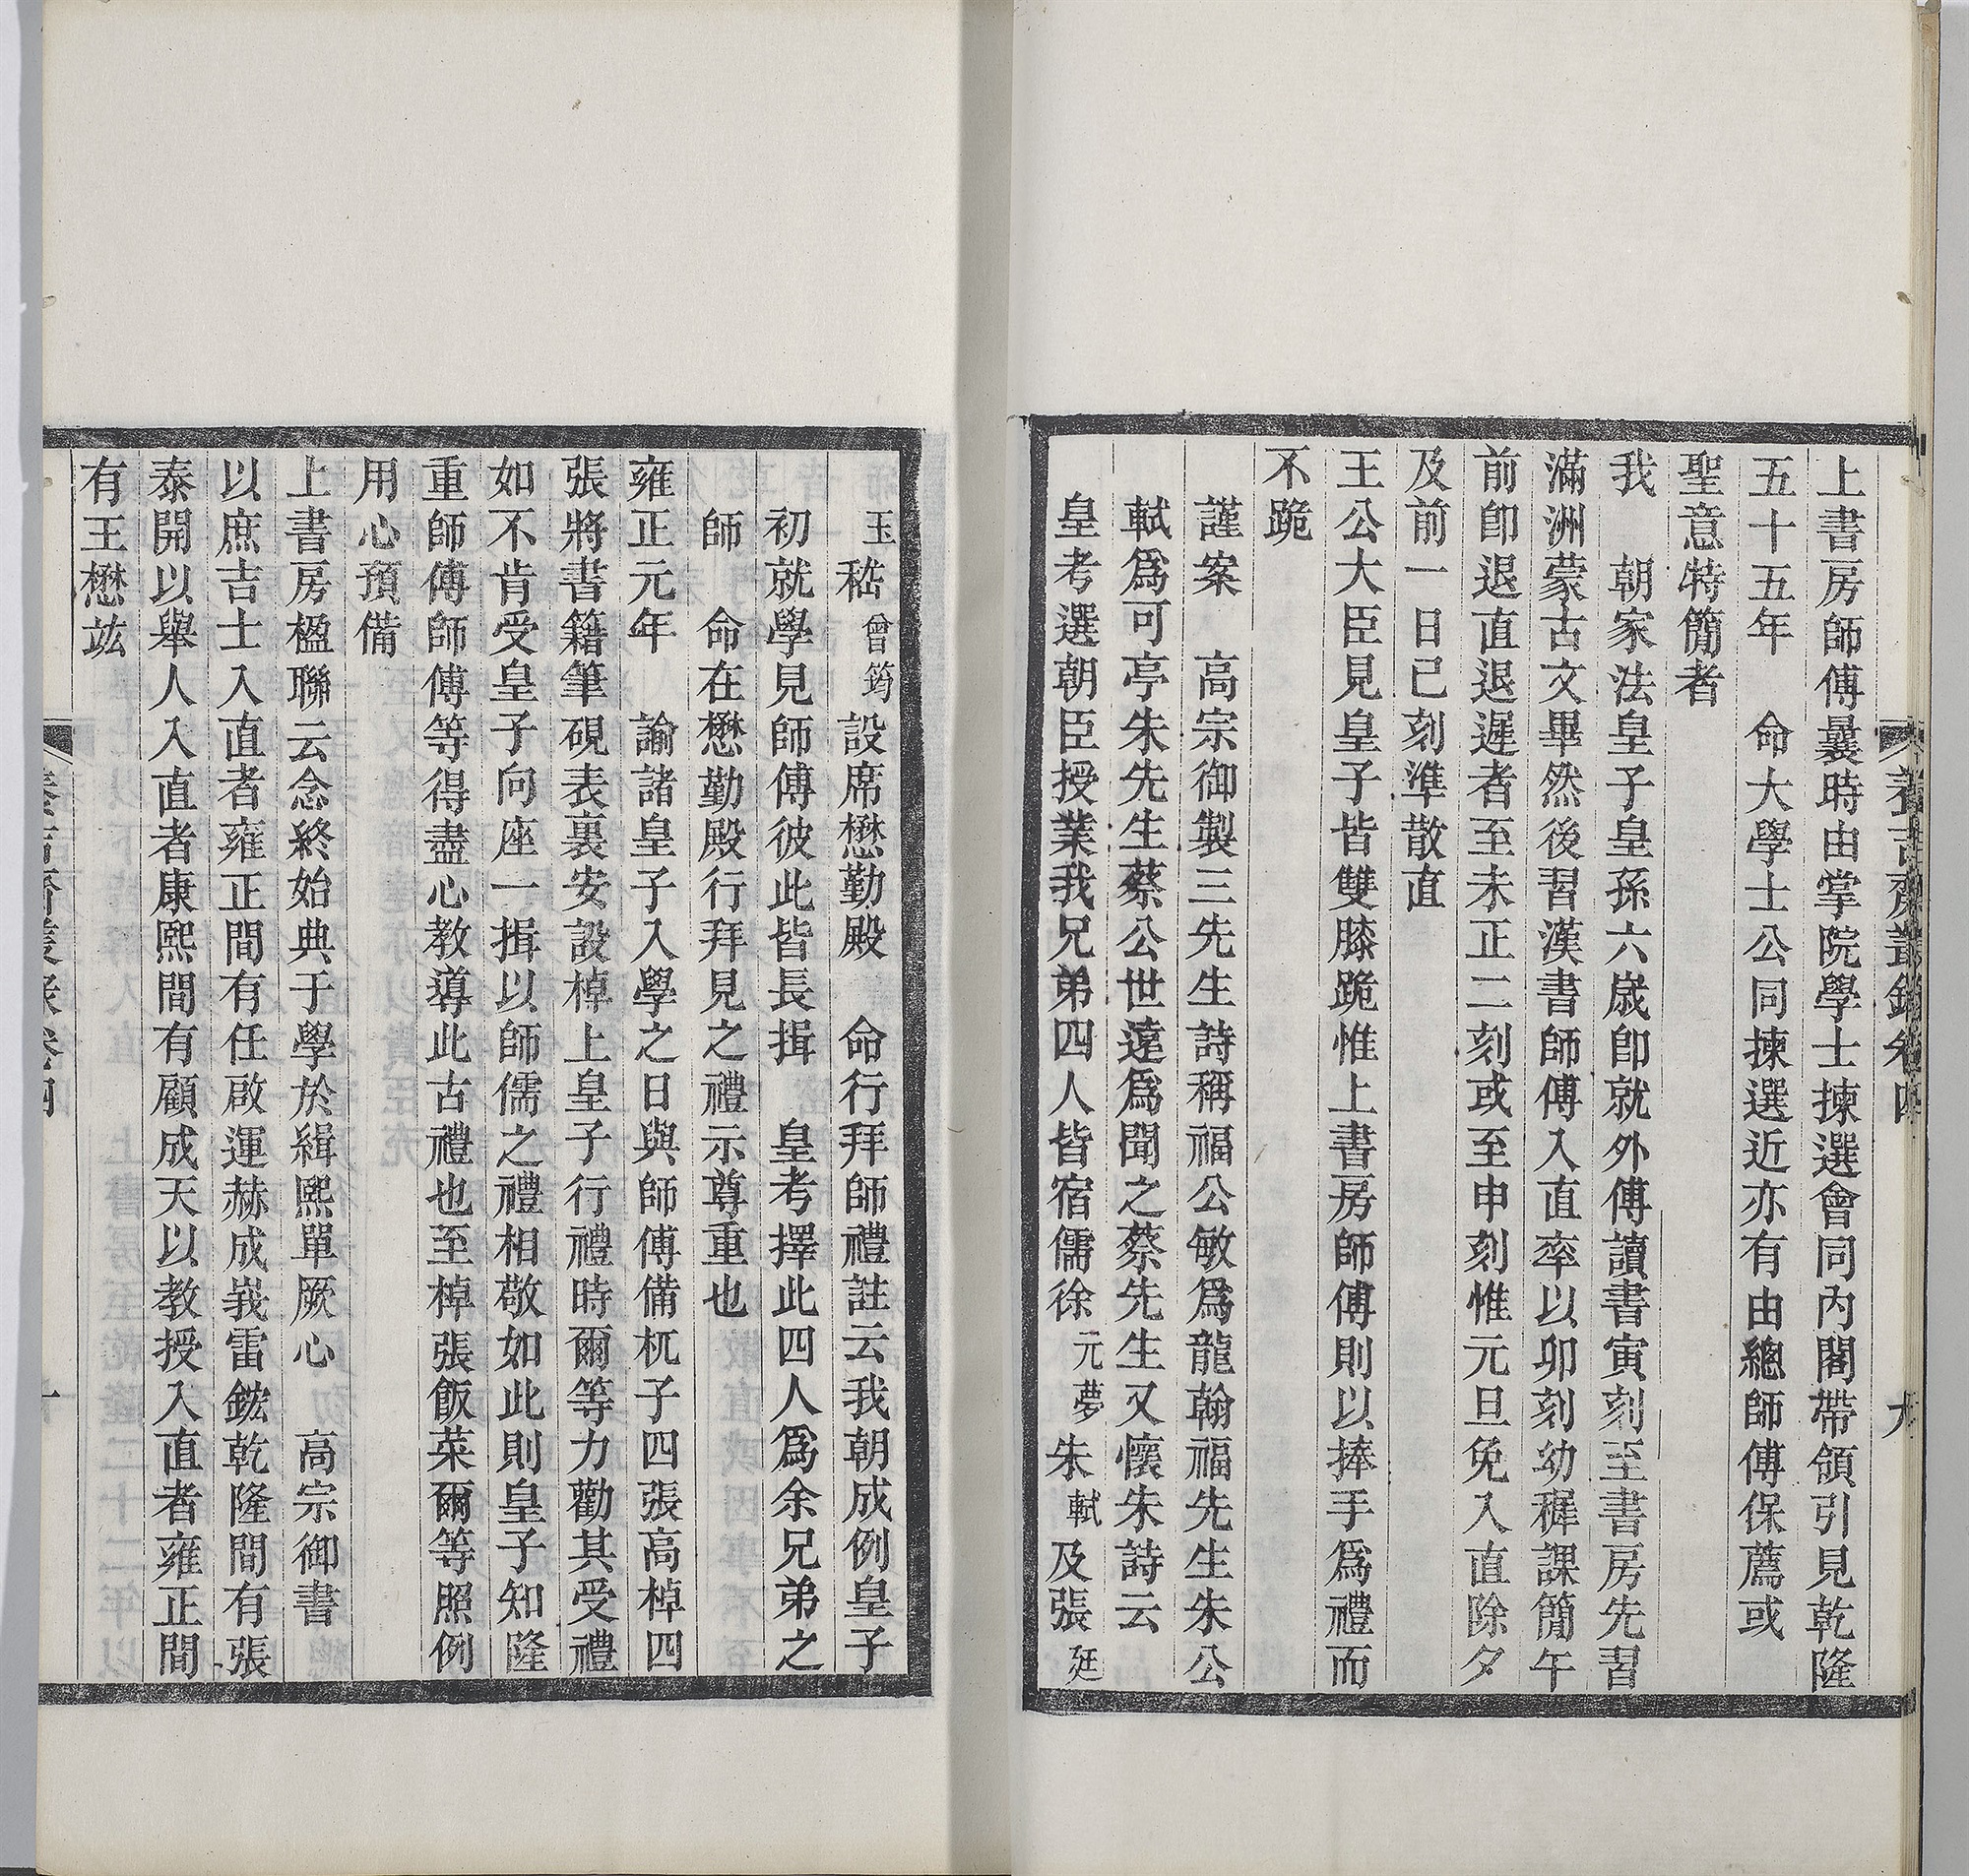 養吉齋叢錄卷四　九
上書房師傅曩時由掌院學士揀選會同內閣帶領引見乾隆
五十五年　命大學士公同揀選近亦有由總師傅保薦或
聖意特簡者
我　朝家法皇子皇孫六歲卽就外傅讀書寅刻至書房先習
滿洲蒙古文畢然後習漢書師傅入直率以卯刻幼穉課簡午
前卽退直退遲者至未正二刻或至申刻惟元旦免入直除夕
及前一日巳刻準散直
王公大臣見皇子皆雙膝跪惟上書房師傅則以捧手爲禮而
不跪
謹案　高宗御製三先生詩稱福公敏爲龍翰福先生朱公
軾爲可亭朱先生蔡公世遠爲聞之蔡先生又懷朱詩云
皇考選朝臣授業我兄弟四人皆宿儒徐元夢朱軾及張廷
玉嵇曾筠設席懋勤殿　命行拜師禮註云我朝成例皇子
初就學見師傅彼此皆長揖　皇考擇此四人爲余兄弟之
師　命在懋勤殿行拜見之禮示尊重也
雍正元年　諭諸皇子入學之日與師傅備杌子四張高棹四
張將書籍筆硯表裏安設棹上皇子行禮時爾等力勸其受禮
如不肯受皇子向座一揖以師儒之禮相敬如此則皇子知隆
重師傅師傅等得盡心教導此古禮也至棹張飯菜爾等照例
用心預備
上書房楹聯云念終始典于學於緝熙單厥心　高宗御書
以庶吉士入直者雍正間有任啟運赫成峩雷鋐乾隆間有張
泰開以舉人入直者康熙間有顧成天以教授入直者雍正間
有王懋竑
養吉齋叢錄卷四　十